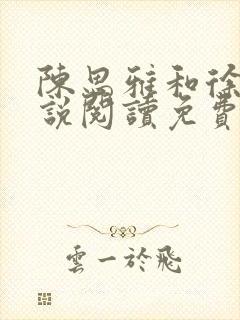 陳思雅和徐
說閱讀免費
雲一於飛